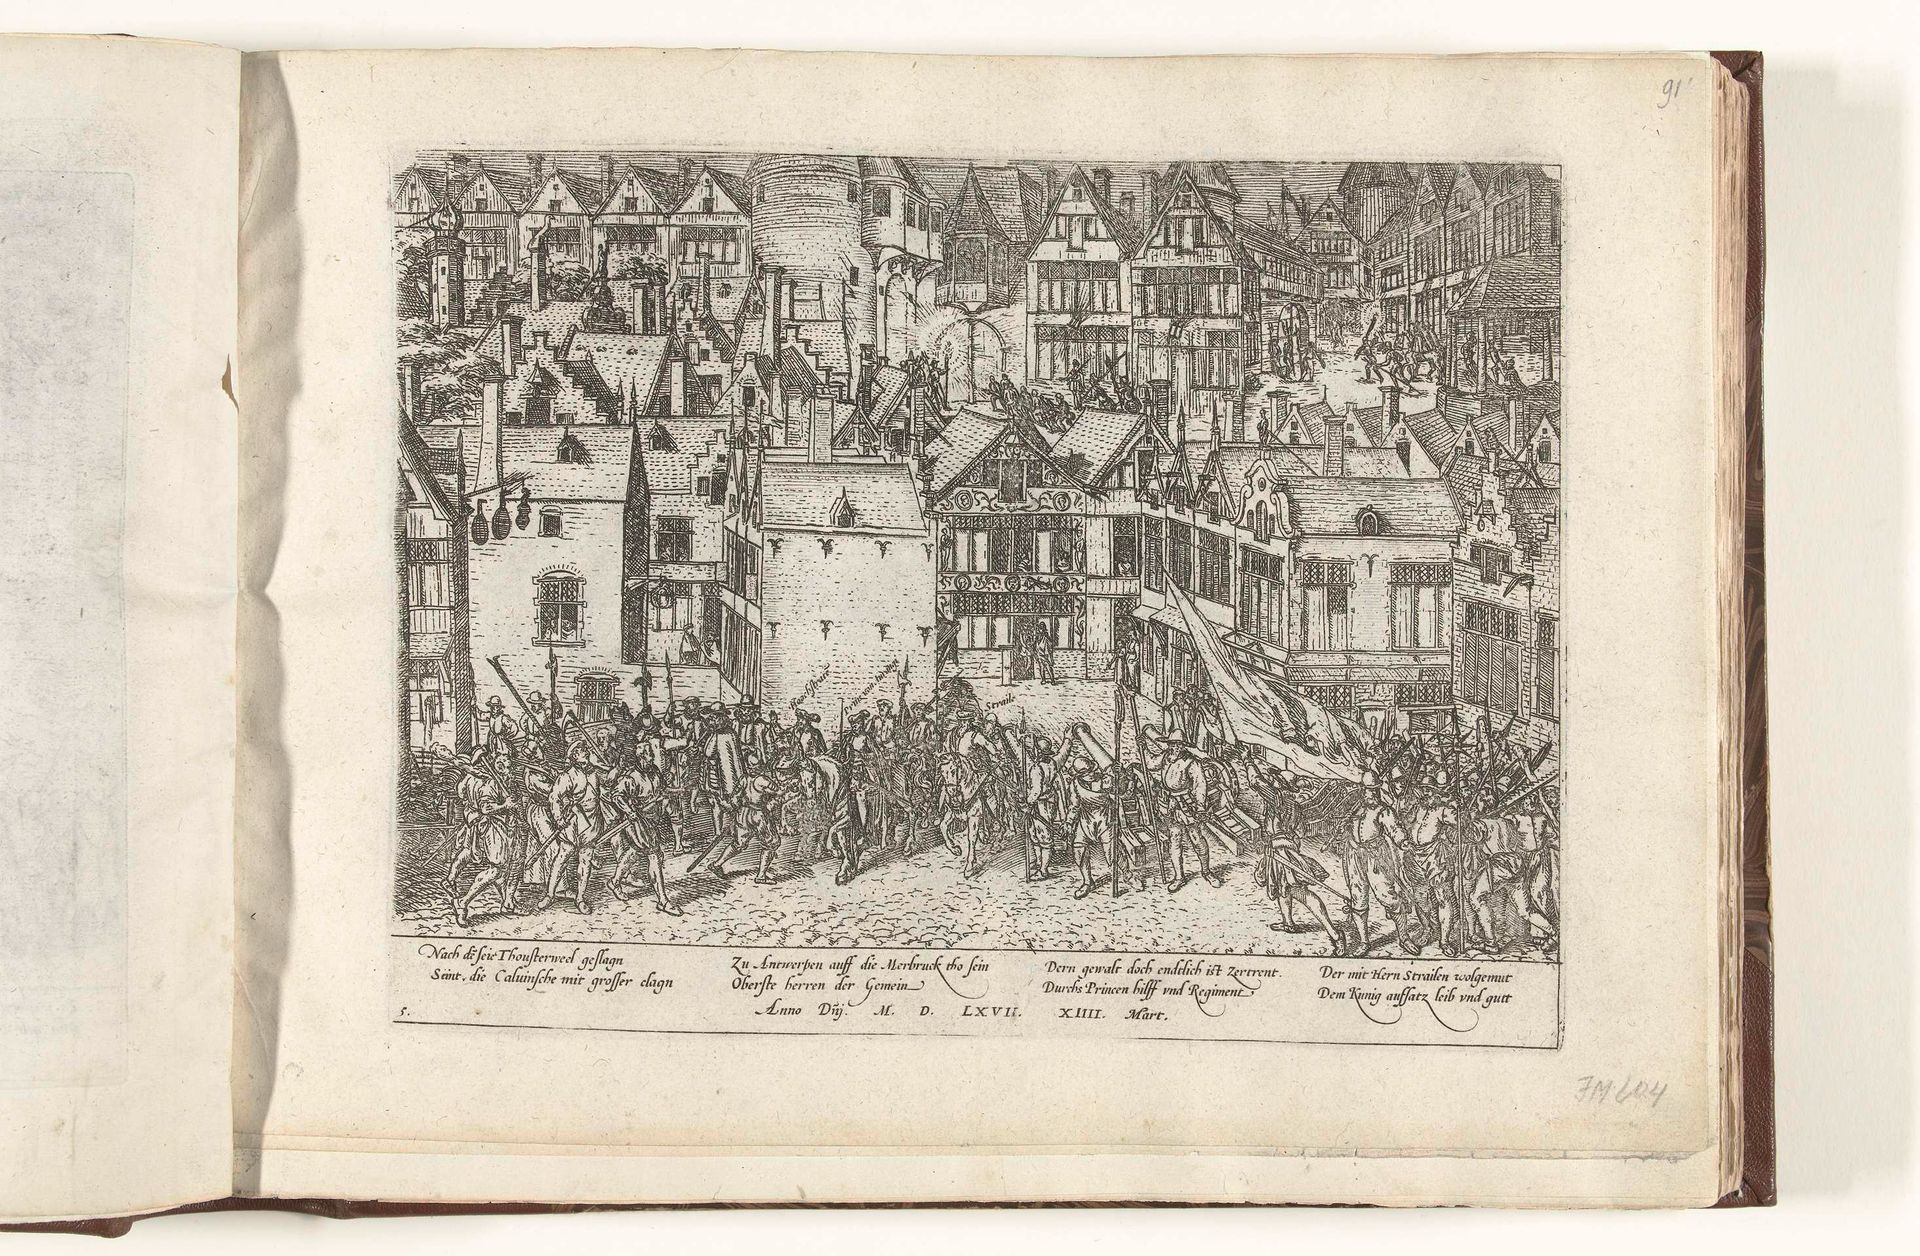 91
Hoochstrate
Prince von Uranien
Straile
Nach dē seie Thousterweel geslagn
Seint die Caluinsche mit grosser clagn
Zu Antwerpen auff die Merbruck tho sein
Oberste herren der Gemein
Dern gewalt doch endelich ist zertrent.
Durchs Princen hilff vnd Regiment
Der mit Hern Strailen wolgemut
Dem Kunig auffsatz leib vnd gutt
5.
Anno Dnj. M. D. LXVII. XIIII. Mart.
FM.604